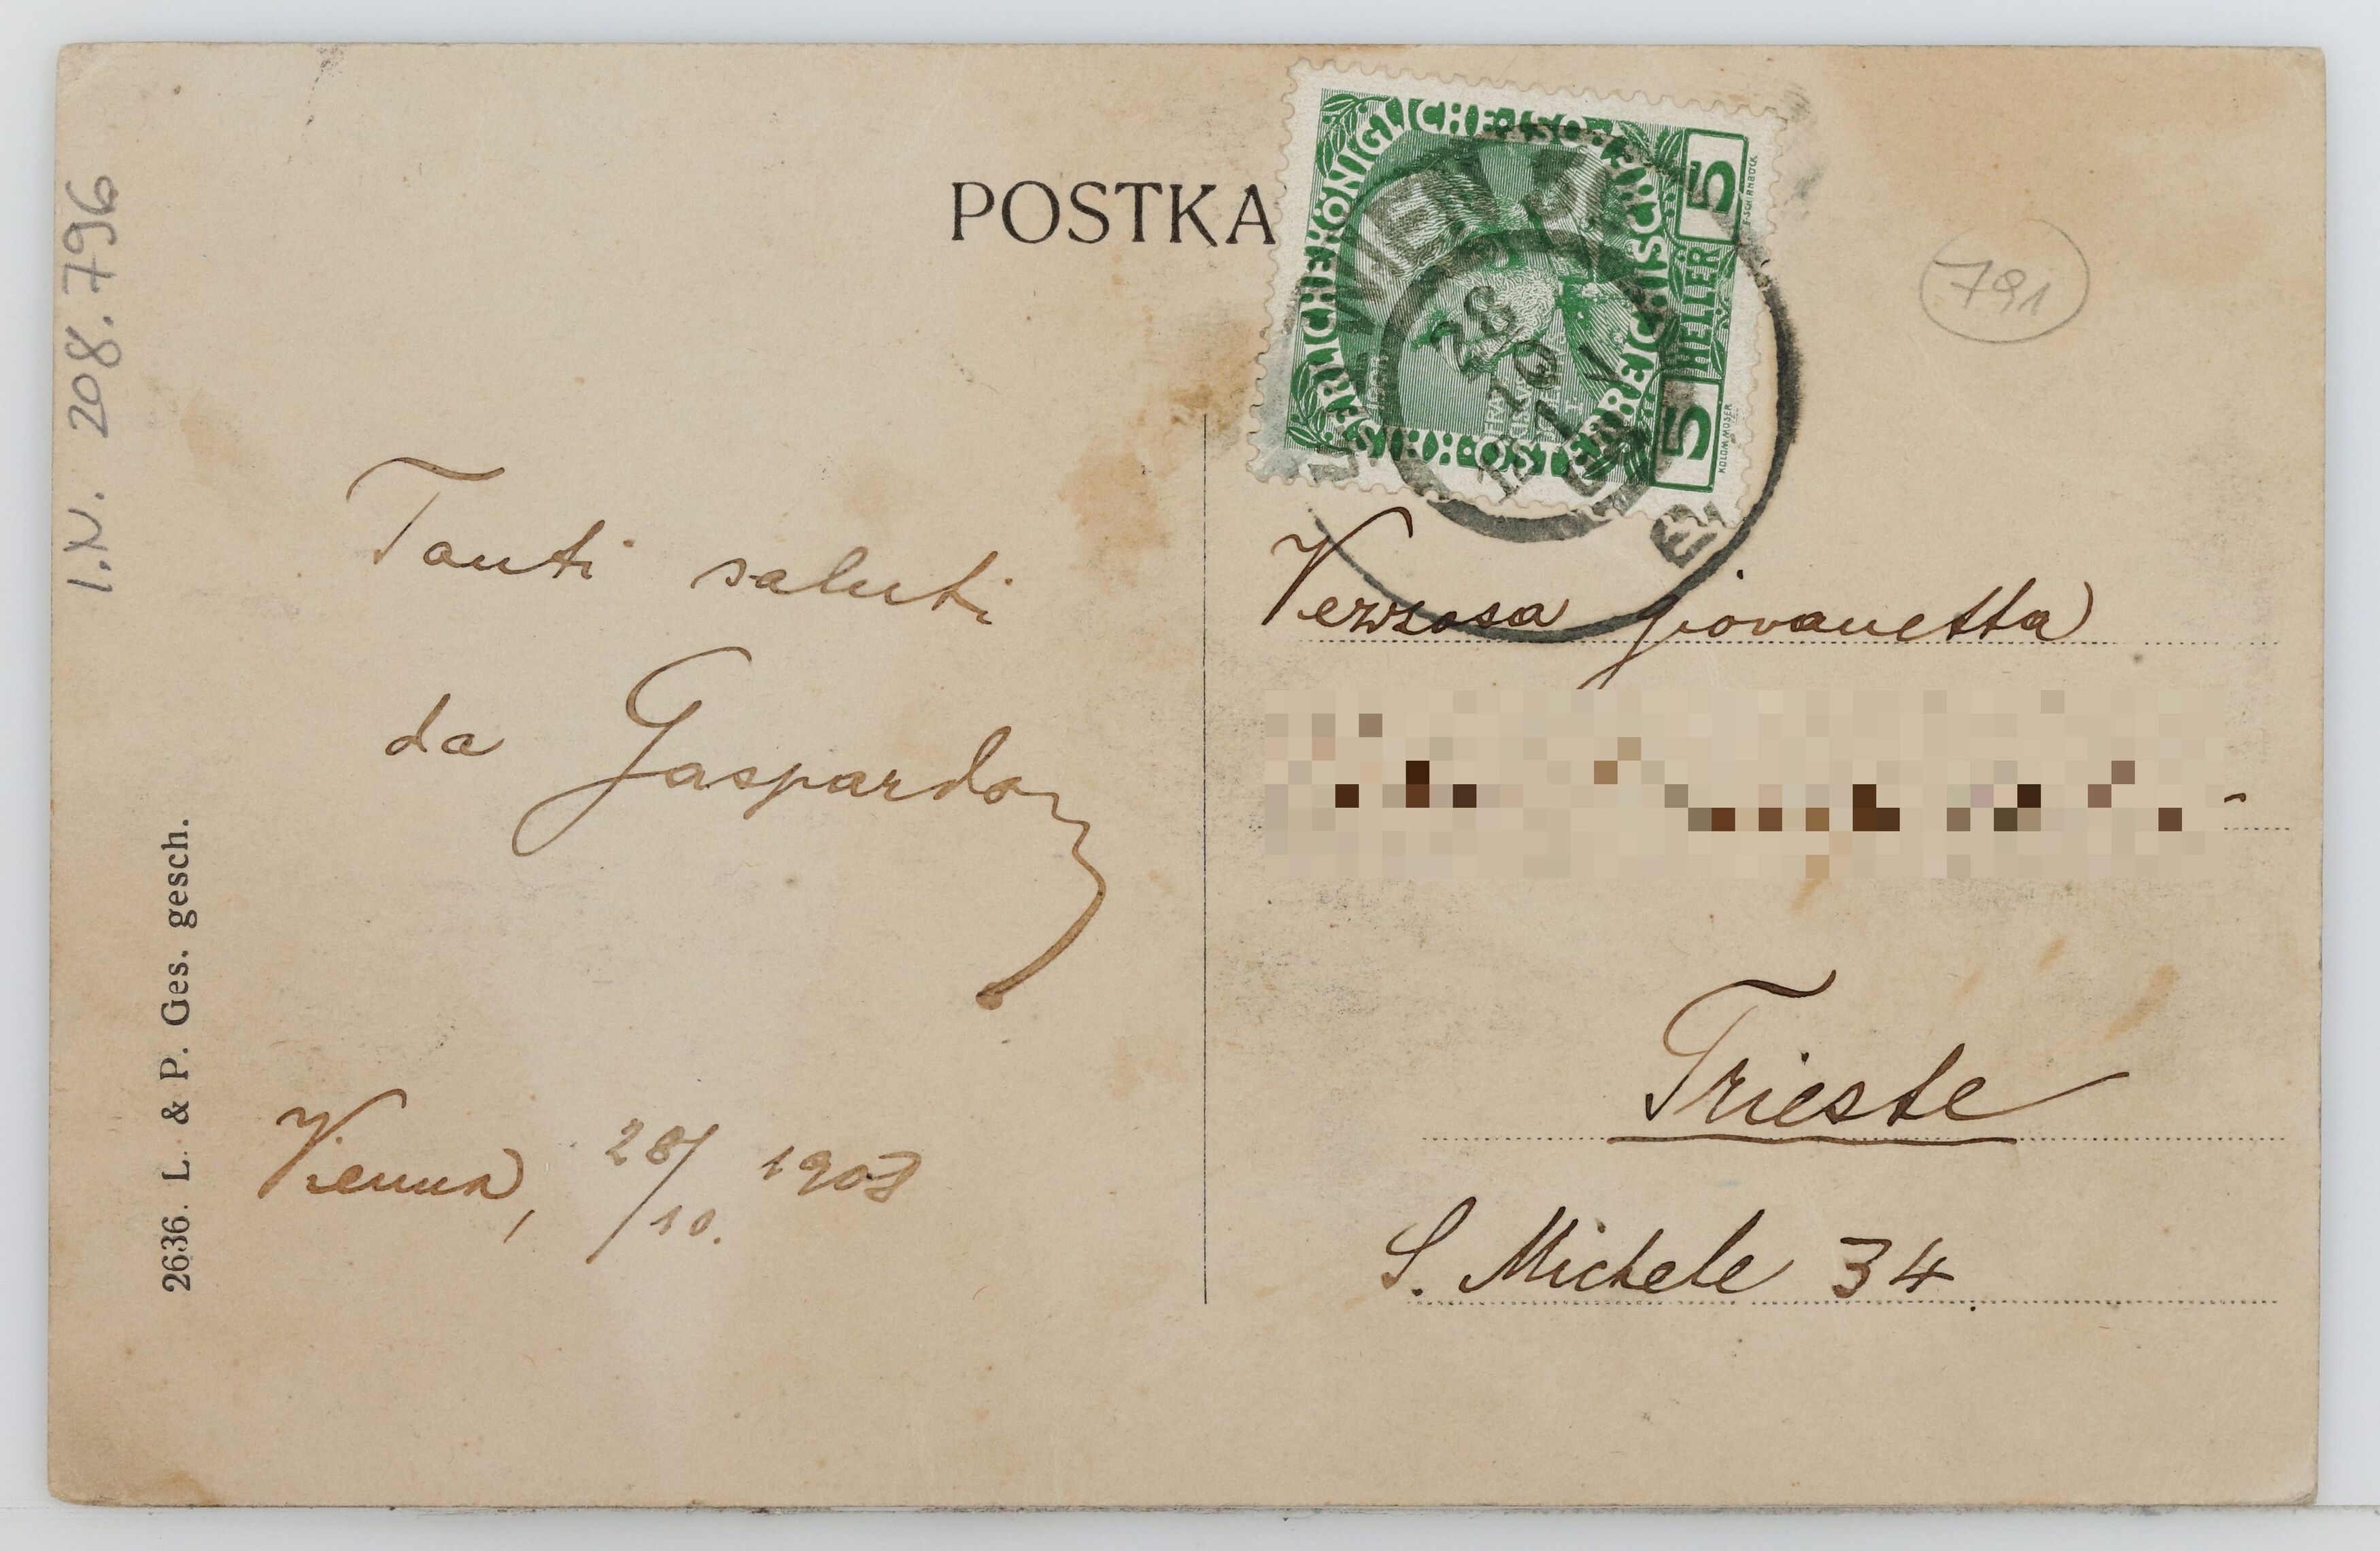 I.N. 208.796
POSTKA
KAISERLICHE KÖNIGLICHE ÖSTERREICHISCHE POST
5 HELLER 5
KOLOM.MOSER
F.SCHIRNBÖCK
WIEN
28
10
791
Tanti saluti
da Gaspardo
Vienna, 28/10. 1908
Vezzosa Giovanetta
Trieste
S. Michele 34.
2636. L. & P. Ges. gesch.